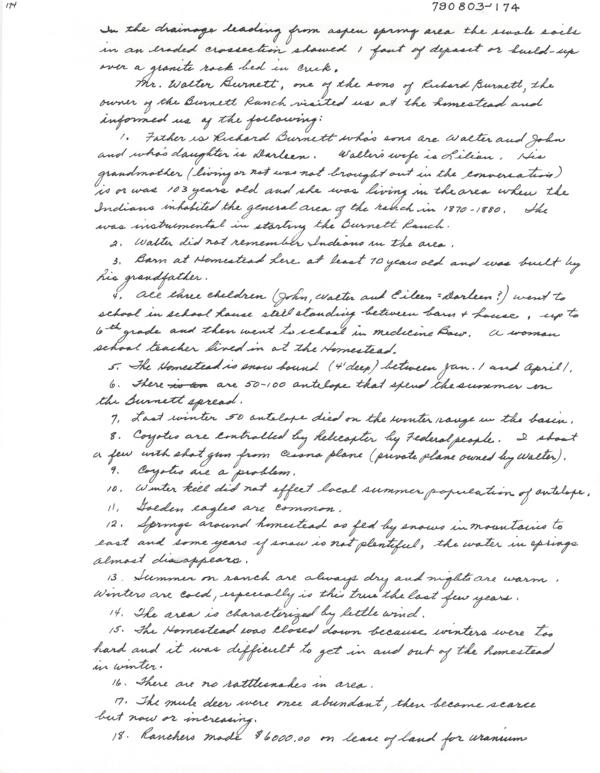 174
790803-174
In the drainage leading from aspen spring area the swale soils
in an eroded crossection showed 1 foot of deposit or build-up
over a granite rock bed in creek.
Mr. Walter Burnett, one of the sons of Richard Burnett, the
owner of the Burnett Ranch visited us at the homestead and
informed us of the following:
1. Father is Richard Burnett who's sons are Walter and John
and who's daughter is Darleen. Walter's wife is Lilian. His
grandmother (living or not was not brought out in the conversation)
is or was 103 years old and she was living in the area when the
Indians inhabited the general area of the ranch in 1870-1880. She
was instrumental in starting the Burnett Ranch.
2. Walter did not remember Indians in the area.
3. Barn at Homestead here at least 70 years old and was built by
his grandfather.
4. All three children (John, Walter and Eileen = Darleen?) went to
school in school house still standing between barn + house, up to
6th grade and then went to school in Medicine Bow. A woman
school teacher lived in at the Homestead.
5. The Homestead is snow bound (4' deep) between Jan. 1 and April 1.
6. There is an are 50-100 antelope that spend the summer on
the Burnett spread.
7. Last winter 50 antelope died on the winter range in the basin.
8. Coyotes are controlled by helicopter by Federal people. I shoot
a few with shot gun from Cessna plane (private plane owned by Walter).
9. Coyotes are a problem.
10. Winter kill did not effect local summer population of antelope.
11. Golden eagles are common.
12. Springs around homestead as fed by snows in mountains to
east and some years if snow is not plentiful, the water in springs
almost disappears.
13. Summer on ranch are always dry and nights are warm.
Winters are cold, especially is this true the last few years.
14. The area is characterized by little wind.
15. The Homestead was closed down because winters were too
hard and it was difficult to get in and out of the homestead
in winter.
16. There are no rattlesnakes in area.
17. The mule deer were once abundant, then became scarce
but now or increasing.
18. Ranchers made $6000.00 on lease of land for uranium